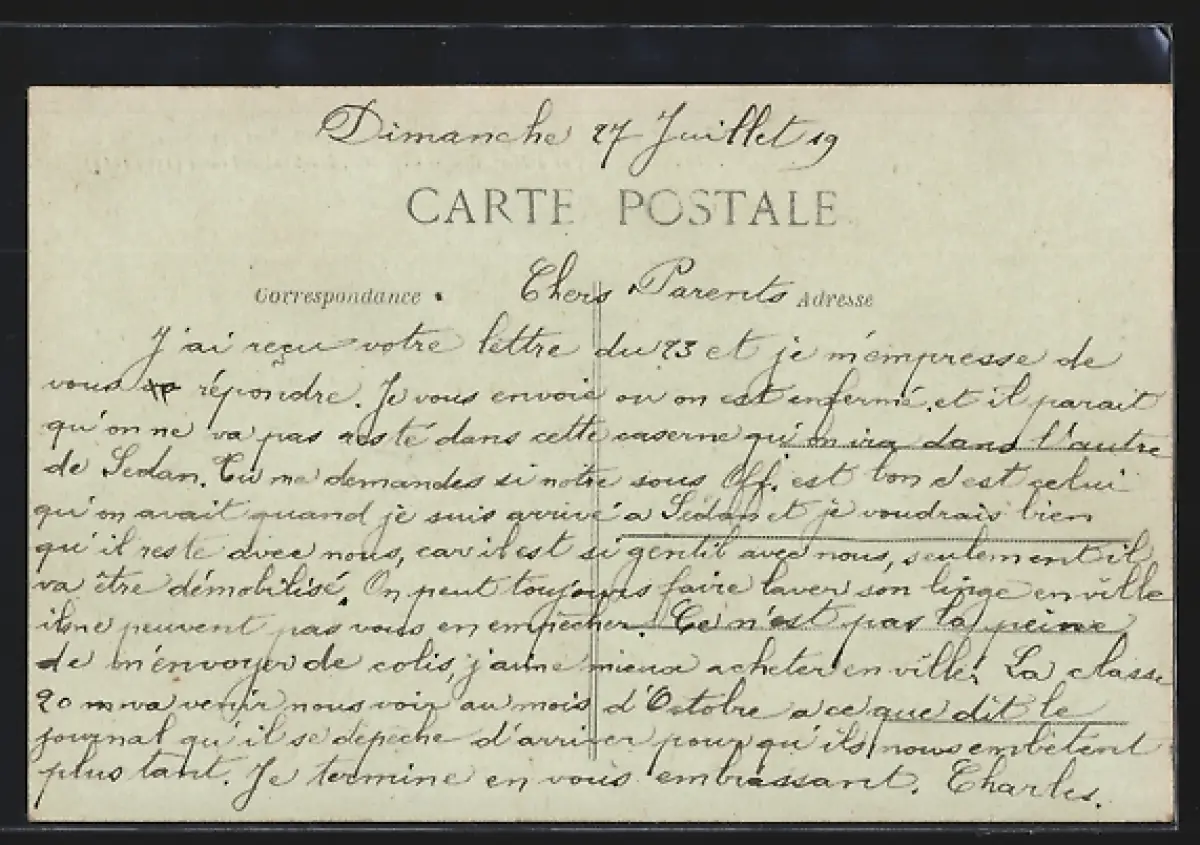 Dimanche 27 Juillet 19
CARTE POSTALE
Chers Parents
Correspondance Adresse
J'ai reçu votre lettre du 23 et je m'empresse de
vous répondre. Je vous envoie ou on est enfermé, et il parait
qu'on ne va pas resté dans cette caserne qu'on ira dans l'autre
de Sedan. Tu me demandes si notre sous Off. est bon c'est celui
qu'on avait quand je suis arrivé a Sedan et je voudrais bien
qu'il reste avec nous, car il est si gentil avec nous, seulement il
va être démobilisé. On peut toujours faire laver son linge en ville
ils ne peuvent pas vous en empêcher. Ce n'est pas la peine
de m'envoyer de colis, j'aime mieux acheter en ville. La classe
20 va venir nous voir au mois d'Octobre a ce que dit le
journal qu'il se dépêche d'arriver pour qu'ils nous embêtent
plus tant. Je termine en vous embrassant. Charles.